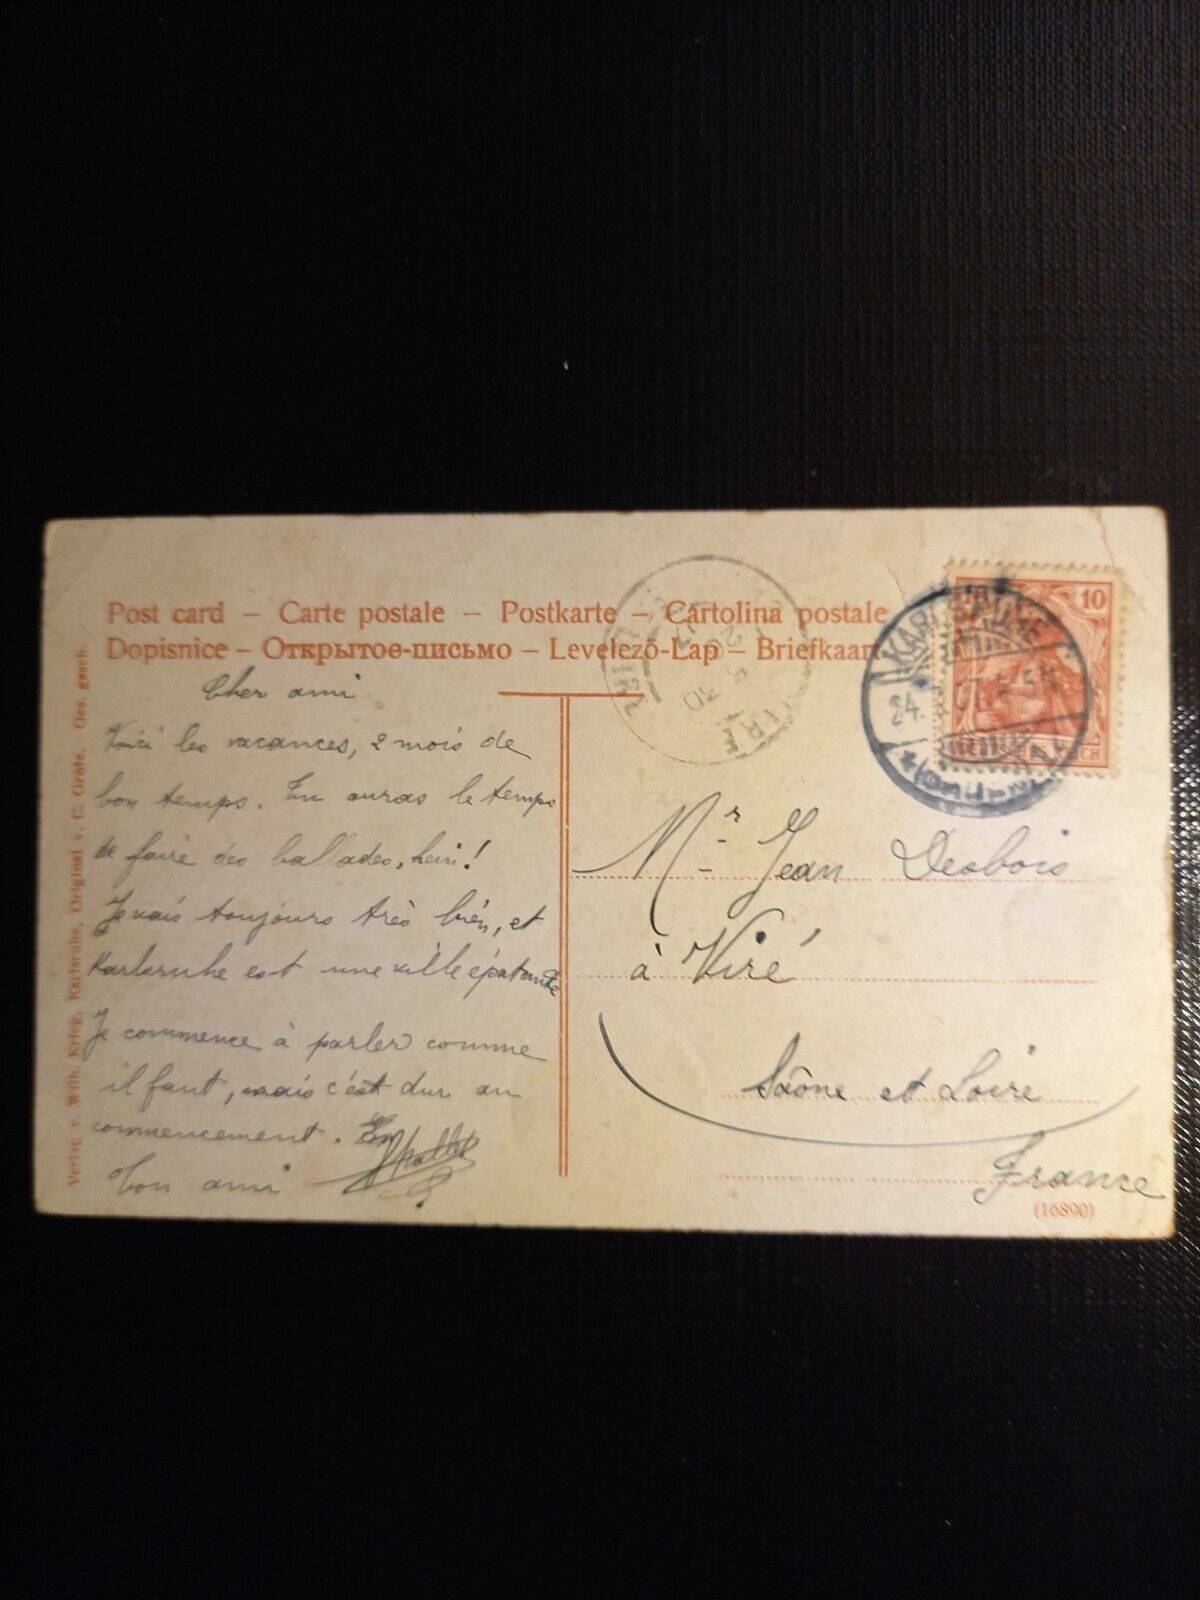 Post card – Carte postale – Postkarte – Cartolina postale
Dopisnice – Открытое-письмо – Levelező-Lap – Briefkaart
Cher ami
Voici les vacances, 2 mois de
bon temps. Tu auras le temps
de faire des ballades, hein!
Je vais toujours très bien, et
Karlsruhe est une ville épatante
Je commence à parler comme
il faut, mais c'est dur au
commencement.
Ton ami
Verlag v. Wilh. Krieg, Karlsruhe, Original v. C. Grote. Ges. gesch.
10
KARLSRUHE
24.
Mr Jean Desbois
à Viré
Saône et Loire
France
(16890)